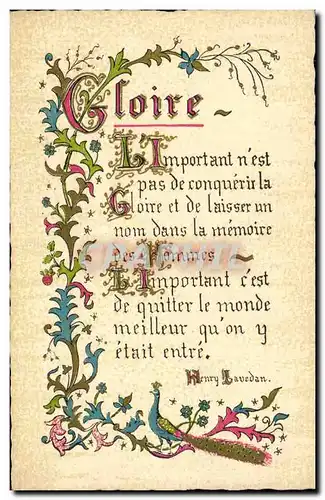 Gloire ~
L'Important n'est
pas de conquérir la
Gloire et de laisser un
nom dans la mémoire
Des Hommes ~
L'Important c'est
de quitter le monde
meilleur qu'on y
était entré.
Henry Lavedan.